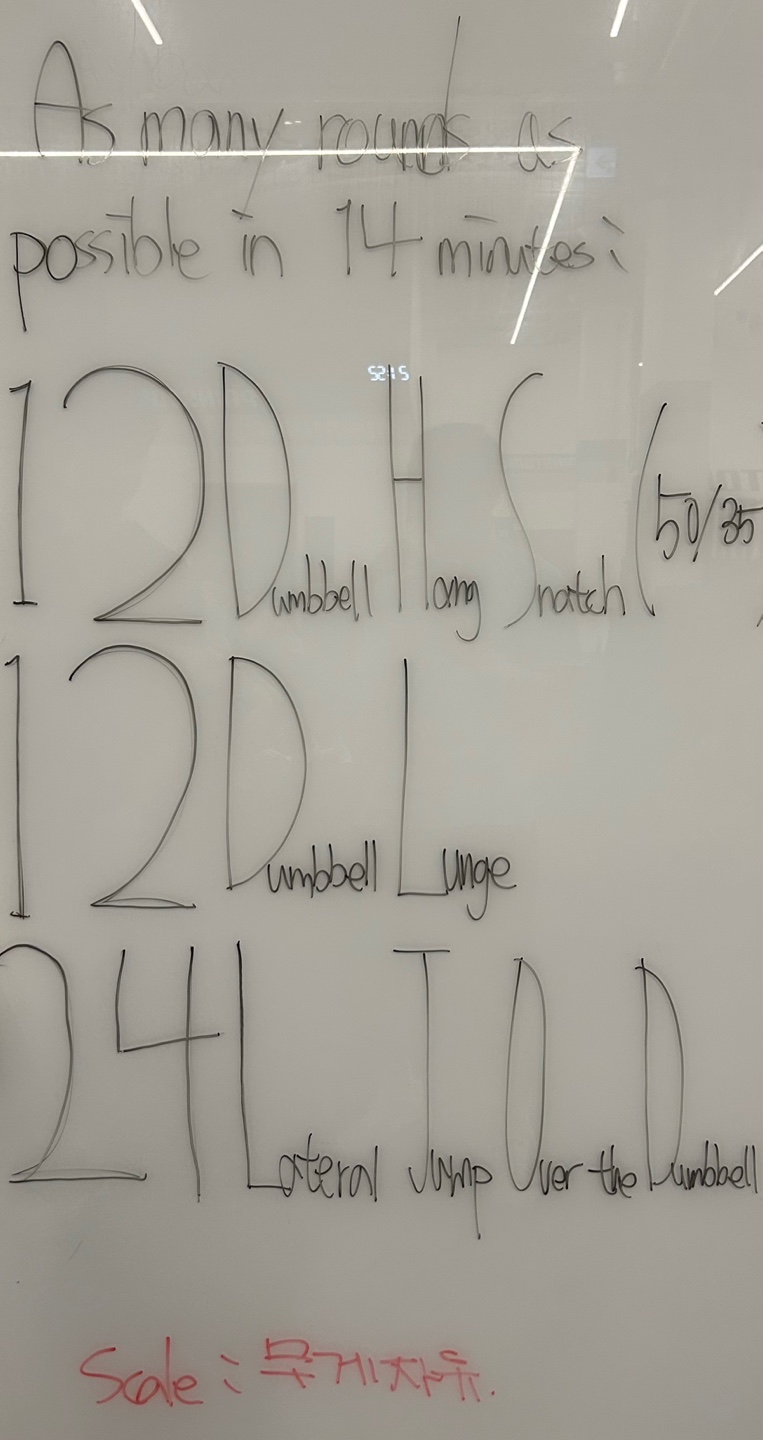 As many rounds as
possible in 14 minutes:
12 Dumbbell Hang Snatch (50/35)
12 Dumbbell Lunge
24 Lateral Jump Over the Dumbbell
Scale: 무게자유.